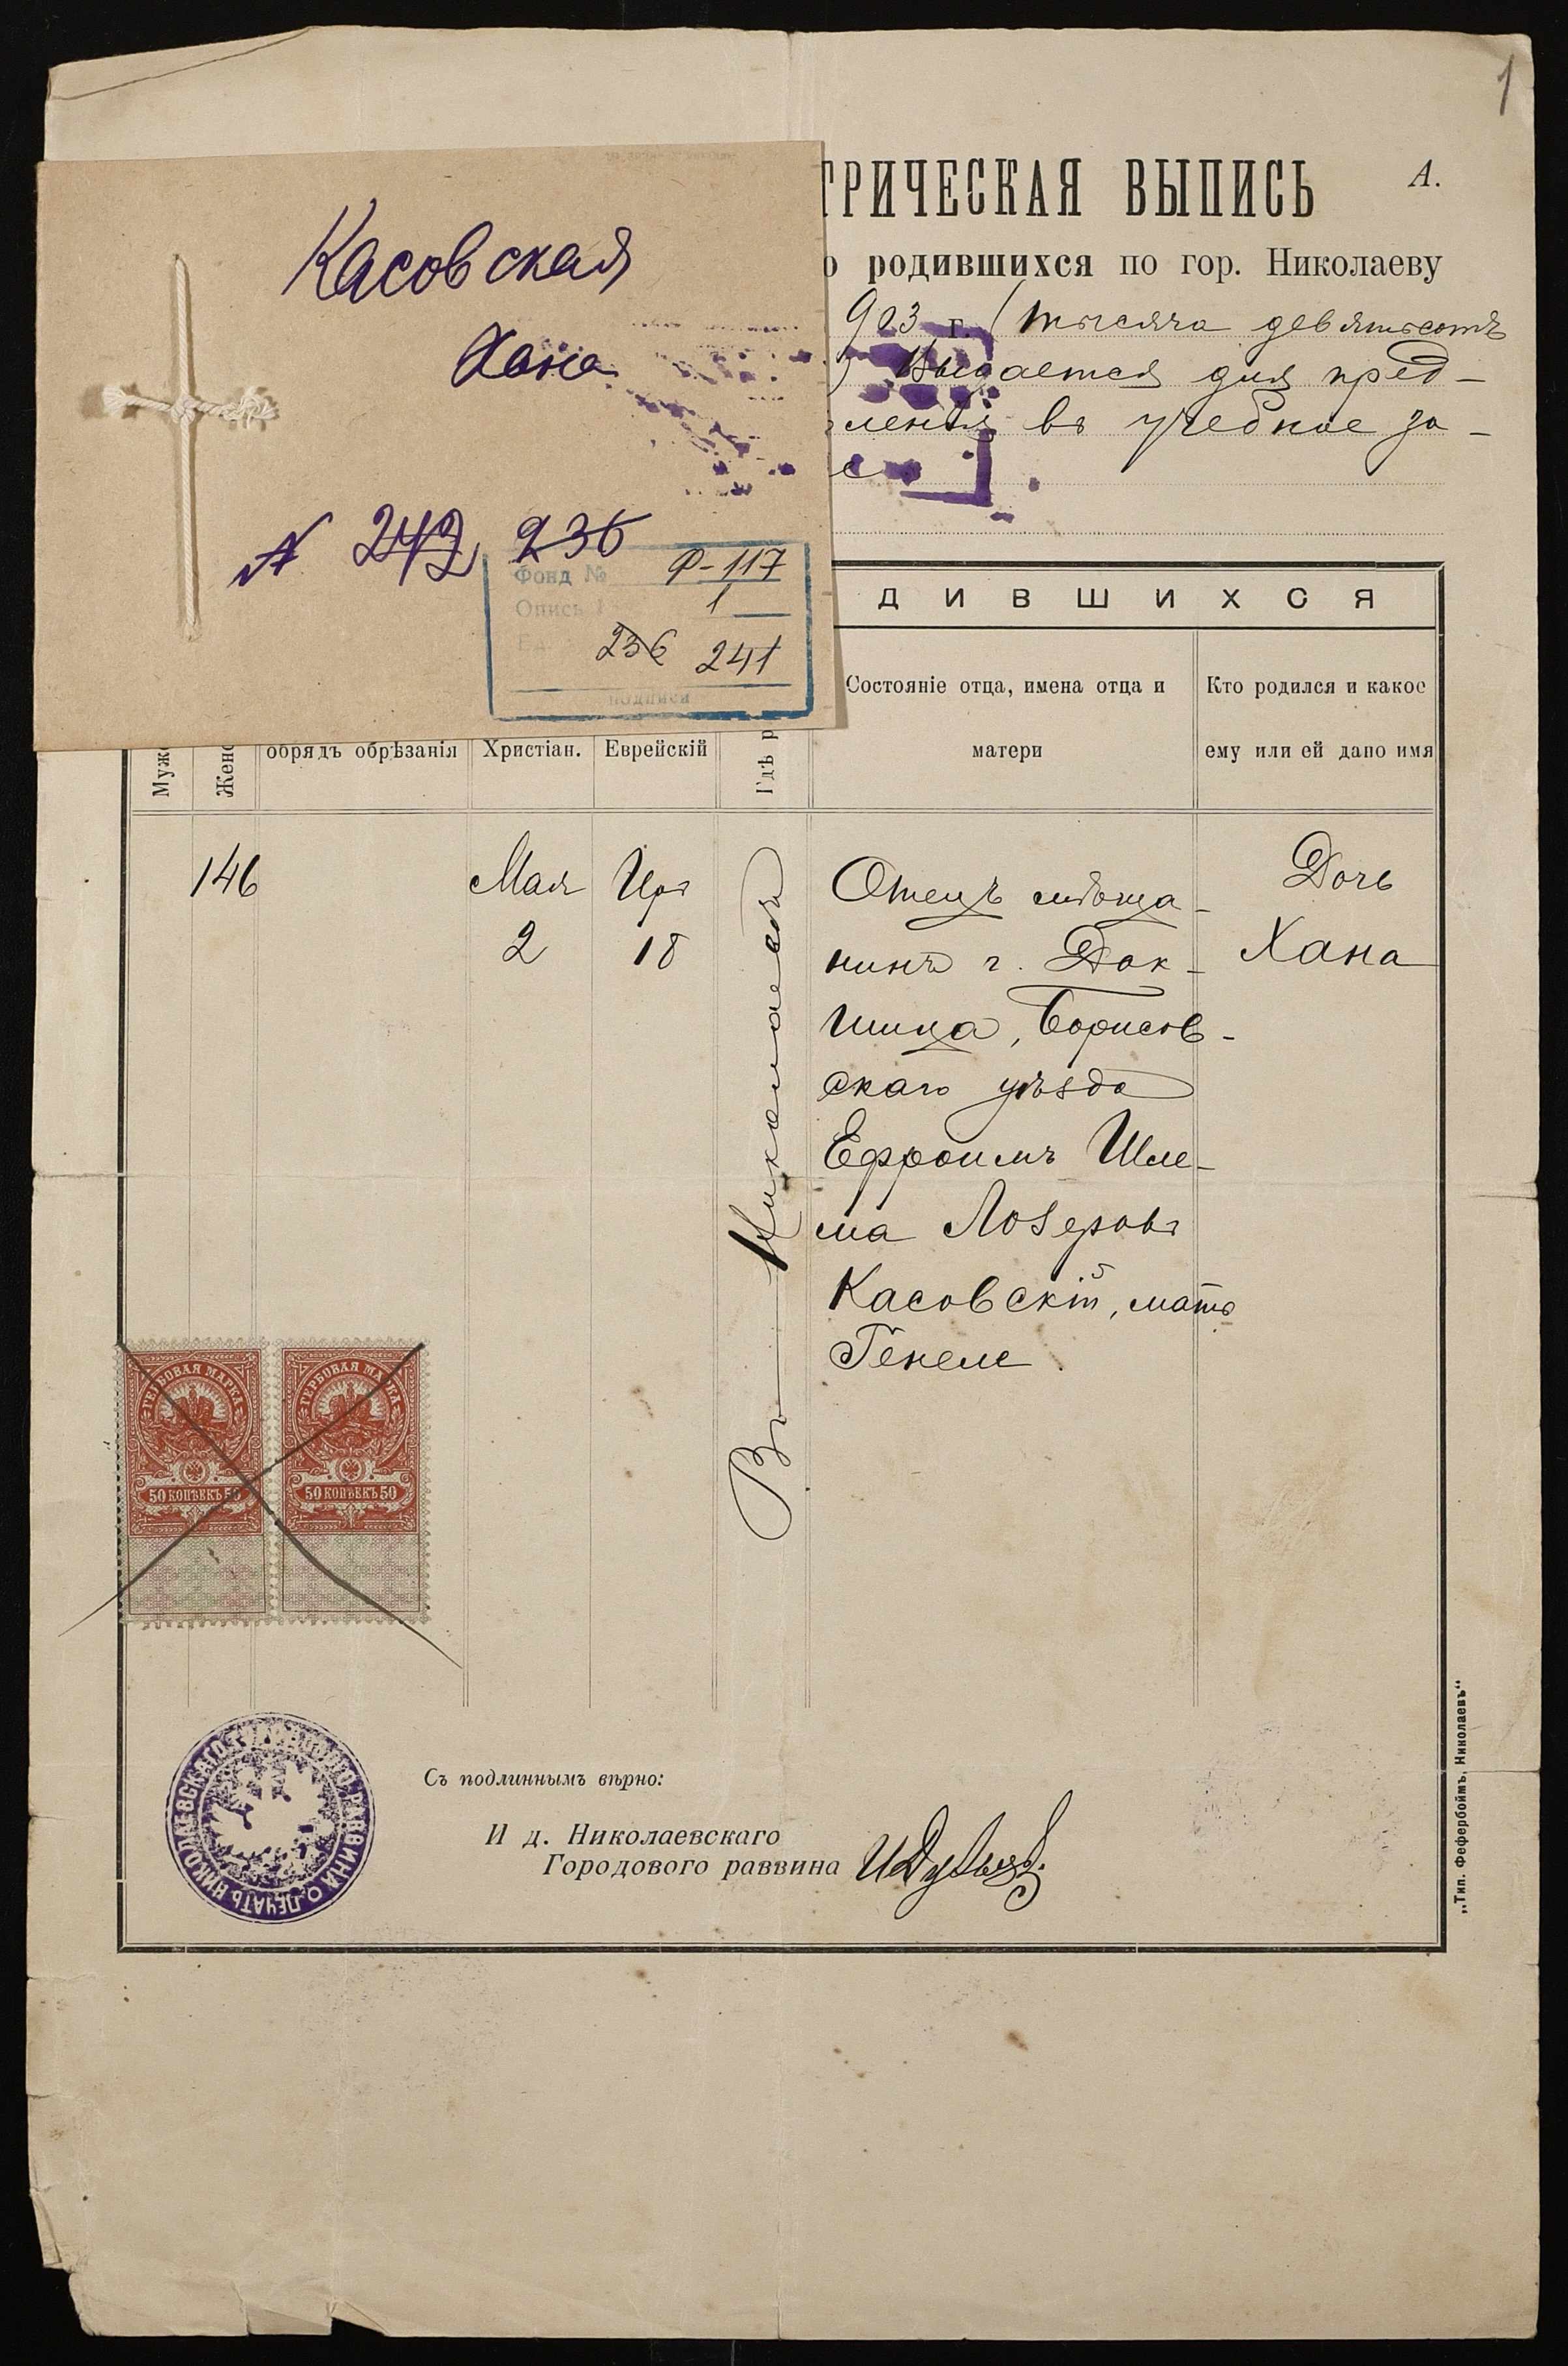 1
Касовская
Хана
№ 242 236
Фонд № Ф-117
Опись 1
236 241
подписи
ТРИЧЕСКАЯ ВЫПИСЬ
А.
о родившихся по гор. Николаеву
903 г. (тысяча девятьсотъ
) Выдается для пред-
ленія въ учебное за-
ДИВШИХСЯ
Муж
Женс
обрядъ обрѣзанія
Христіан.
Еврейскій
Гдѣ р
Состояніе отца, имена отца и
матери
Кто родился и какое
ему или ей дано имя
146
Мая
2
Іяръ
18
Въ Николаевѣ
Отецъ мѣща-
нинъ г. Док-
шица, Борисов-
скаго уѣзда
Ефроимъ Шле-
ма Лозеровъ
Касовскій, мать
Генеле
Дочь
Хана
ГЕРБОВАЯ МАРКА
50 КОПѢЕКЪ 50
ГЕРБОВАЯ МАРКА
50 КОПѢЕКЪ 50
ПЕЧАТЬ НИКОЛАЕВСКАГО ГОРОДОВОГО РАВВИНА
Съ подлиннымъ вѣрно:
И д. Николаевскаго
Городового раввина
„Тип. Фефербоймъ, Николаевъ“